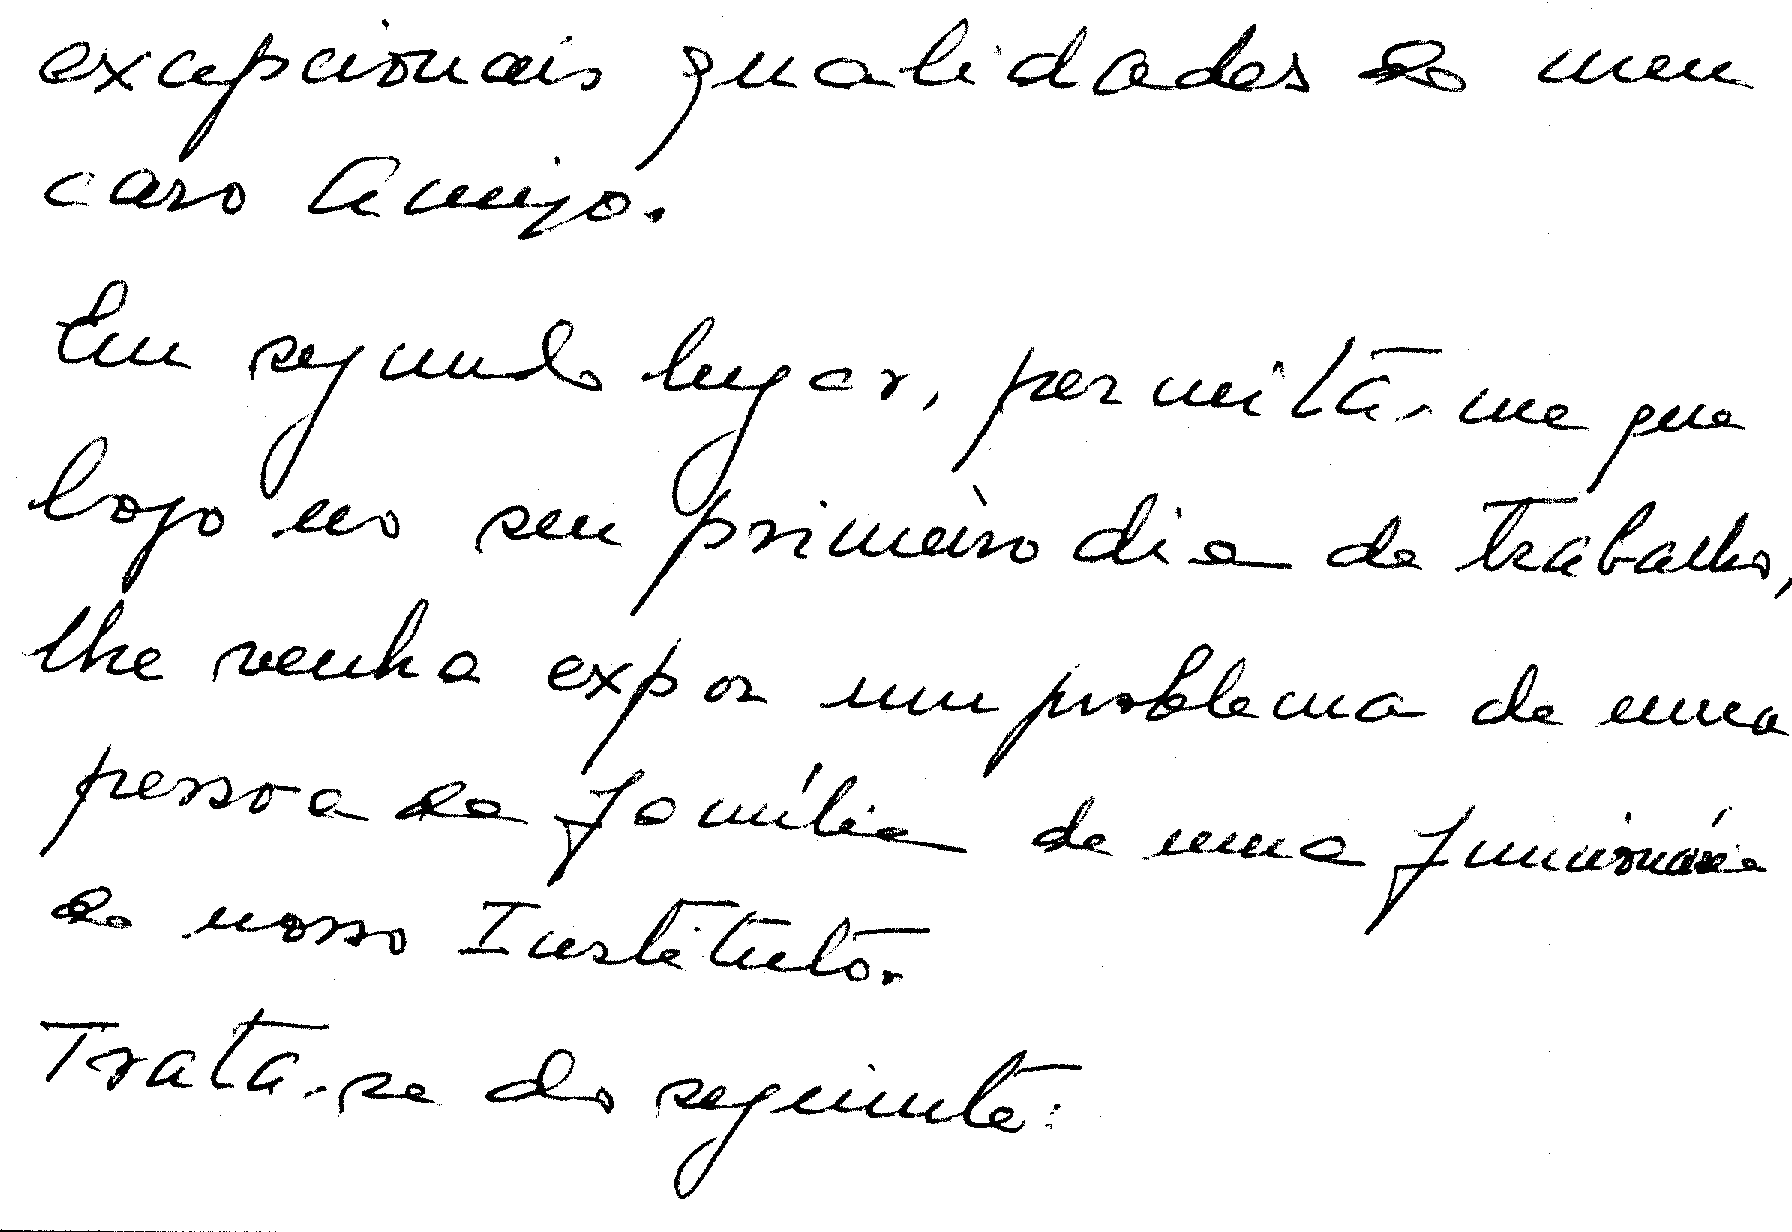 excepcionais qualidades do meu
caro Amigo.
Em segundo lugar, permita-me que
logo no seu primeiro dia de trabalho,
lhe venha expor um problema de uma
pessoa da família de uma funcionária
do nosso Instituto.
Trata-se do seguinte: